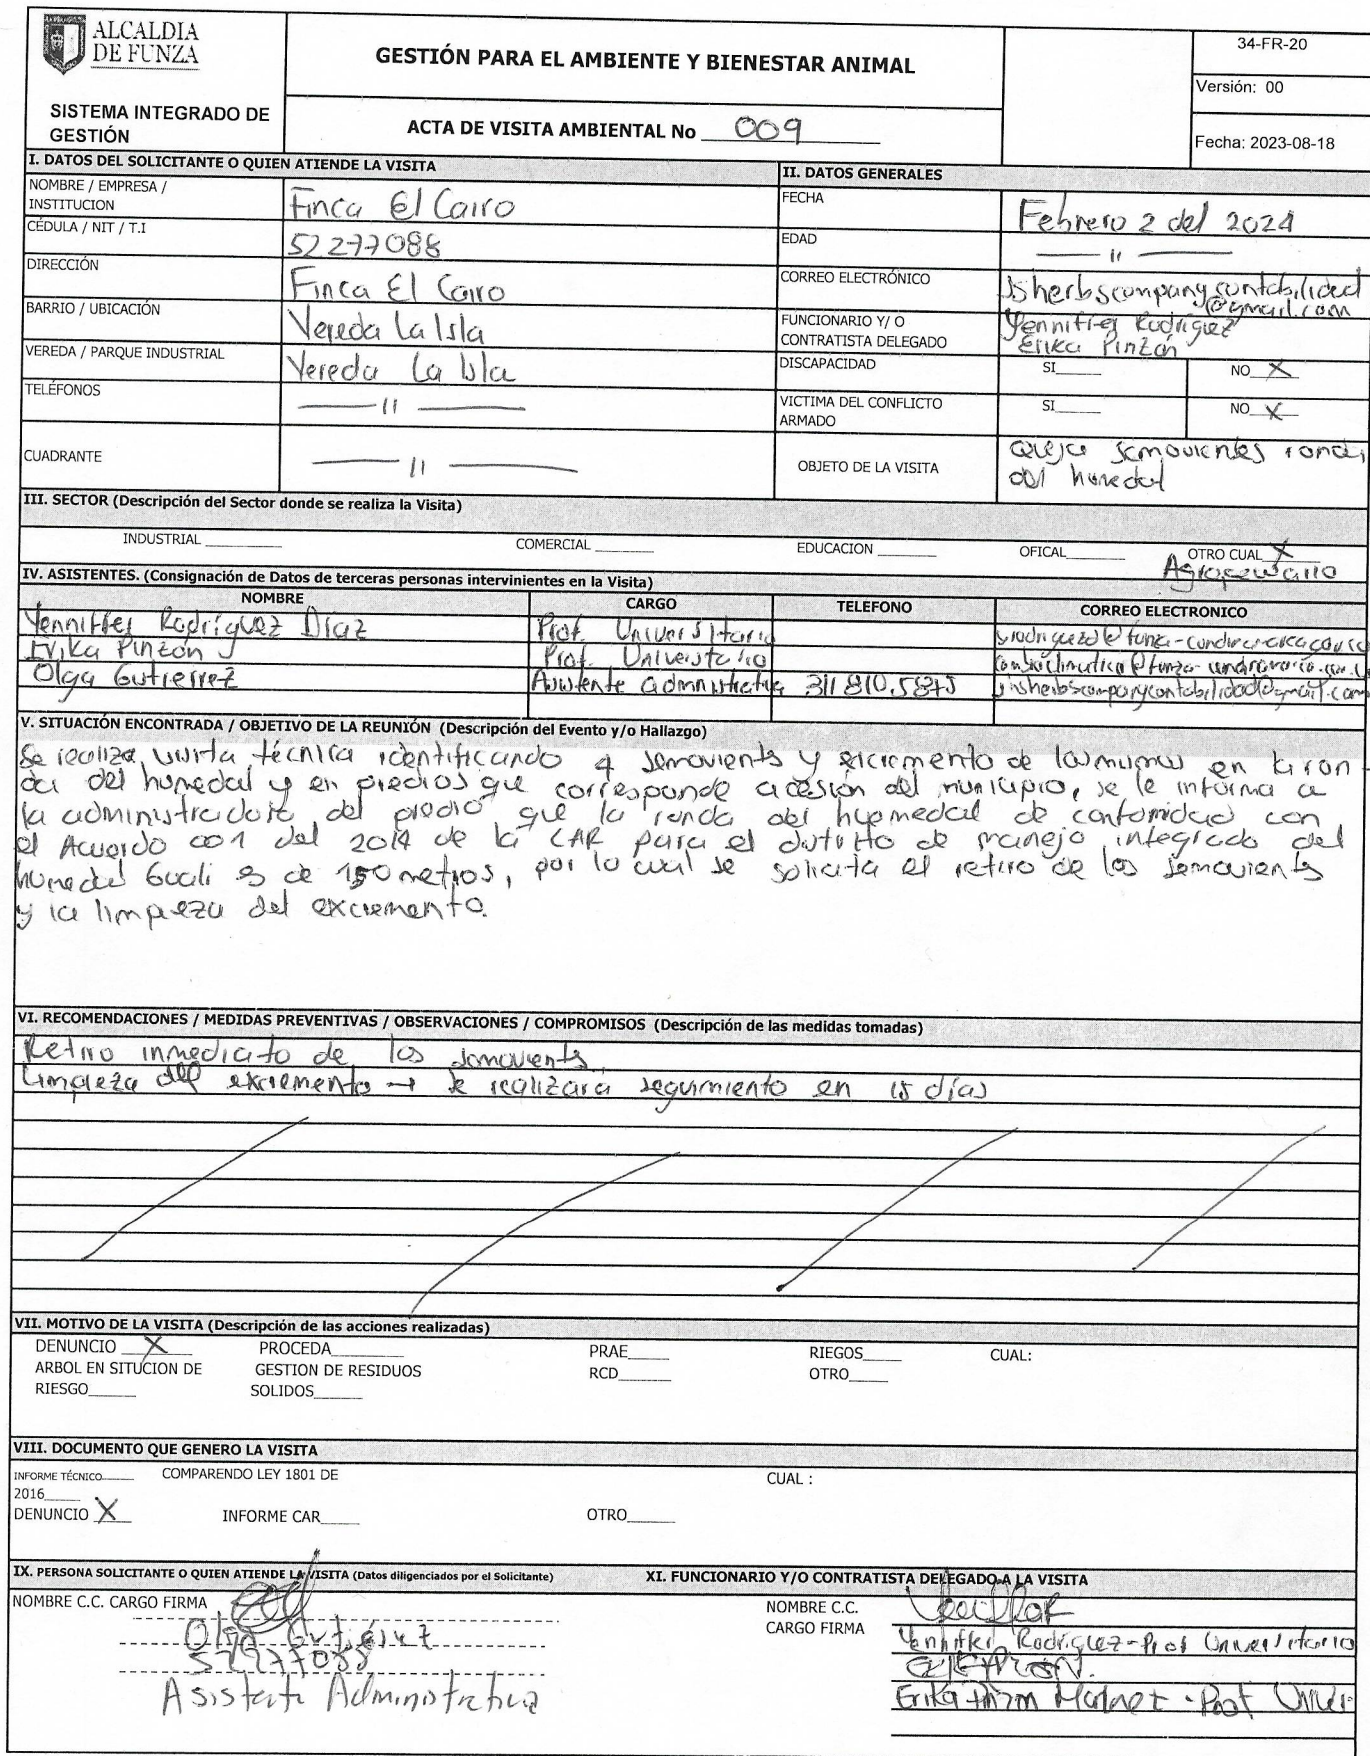 ALCALDIA
DE FUNZA
SISTEMA INTEGRADO DE
GESTIÓN
GESTIÓN PARA EL AMBIENTE Y BIENESTAR ANIMAL
ACTA DE VISITA AMBIENTAL No 009
34-FR-20
Versión: 00
Fecha: 2023-08-18
I. DATOS DEL SOLICITANTE O QUIEN ATIENDE LA VISITA
NOMBRE / EMPRESA /
INSTITUCION
Finca El Cairo
CÉDULA / NIT / T.I
52277088
DIRECCIÓN
Finca El Cairo
BARRIO / UBICACIÓN
Vereda La Isla
VEREDA / PARQUE INDUSTRIAL
Vereda La Isla
TELÉFONOS
— 11 —
CUADRANTE
— 11 —
II. DATOS GENERALES
FECHA
Febrero 2 del 2024
EDAD
— 11 —
CORREO ELECTRÓNICO
jsherbscompanycontabilidad
@gmail.com
FUNCIONARIO Y/ O
CONTRATISTA DELEGADO
Yenniffer Rodríguez
Erika Pinzón
DISCAPACIDAD
SI____ NO X
VICTIMA DEL CONFLICTO
ARMADO
SI____ NO X
OBJETO DE LA VISITA
queja semovientes ronda
del humedal
III. SECTOR (Descripción del Sector donde se realiza la Visita)
INDUSTRIAL ____ COMERCIAL ____ EDUCACION ____ OFICAL____ OTRO CUAL X
Agropecuario
IV. ASISTENTES. (Consignación de Datos de terceras personas intervinientes en la Visita)
NOMBRE CARGO TELEFONO CORREO ELECTRONICO
Yenniffer Rodríguez Díaz Prof. Universitario
Erika Pinzón Prof. Universitario
Olga Gutierrez Asistente administrativa 311 810.5875 jsherbscompanycontabilidad@gmail.com
V. SITUACIÓN ENCONTRADA / OBJETIVO DE LA REUNIÓN (Descripción del Evento y/o Hallazgo)
Se realiza visita técnica identificando 4 semovients y excremento de los mismos en la ron-
da del humedal y en predios que corresponde a cesión del municipio, se le informa a
la administradora del predio que la ronda del humedal de conformidad con
el Acuerdo 001 del 2014 de la CAR para el distrito de manejo integrado del
humedal Gualí es de 150 metros, por lo cual se solicita el retiro de los semovients
y la limpieza del excremento.
VI. RECOMENDACIONES / MEDIDAS PREVENTIVAS / OBSERVACIONES / COMPROMISOS (Descripción de las medidas tomadas)
Retiro inmediato de los semovients
Limpieza del excremento → se realizara seguimiento en 15 días
VII. MOTIVO DE LA VISITA (Descripción de las acciones realizadas)
DENUNCIO X PROCEDA____ PRAE____ RIEGOS____ CUAL:
ARBOL EN SITUCION DE GESTION DE RESIDUOS RCD____ OTRO____
RIESGO____ SOLIDOS____
VIII. DOCUMENTO QUE GENERO LA VISITA
INFORME TÉCNICO____ COMPARENDO LEY 1801 DE CUAL :
2016____
DENUNCIO X INFORME CAR____ OTRO____
IX. PERSONA SOLICITANTE O QUIEN ATIENDE LA VISITA (Datos diligenciados por el Solicitante)
NOMBRE C.C. CARGO FIRMA
Olga Gutiérrez
52277088
Asistente Administrativa
XI. FUNCIONARIO Y/O CONTRATISTA DELEGADO A LA VISITA
NOMBRE C.C.
CARGO FIRMA
Yenniffer Rodríguez-Prof Universitario
Erika Pinzón - Prof Univer